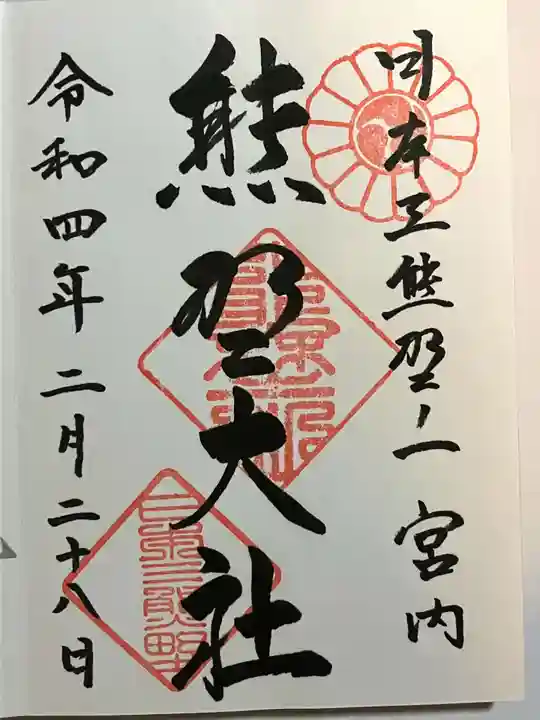 日本三熊野ノ一 宮内
熊野大社
令和四年二月二十八日